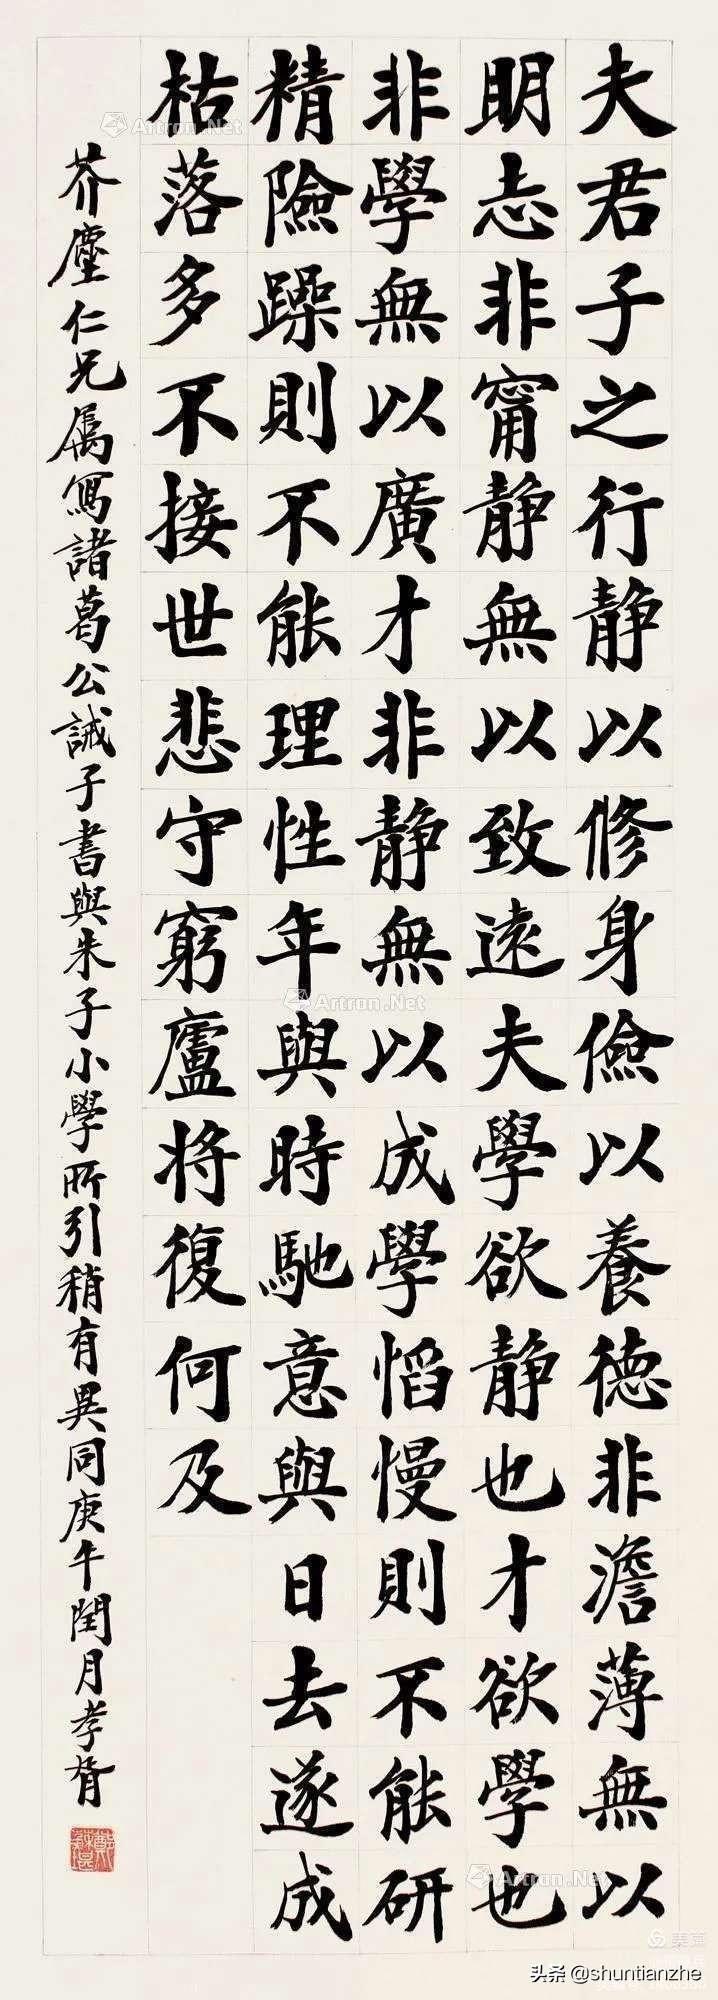 夫君子之行静以修身儉以養德非澹薄無以
明志非甯静無以致遠夫學欲静也才欲學也
非學無以廣才非静無以成學慆慢則不能研
精險躁則不能理性年與時馳意與日去遂成
枯落多不接世悲守窮廬将復何及
芥塵仁兄屬寫諸葛公誡子書與朱子小學所引稍有異同庚午閏月孝胥
Artron.Net
Artron.Net
Artron.Net
头条 @shuntianzhe